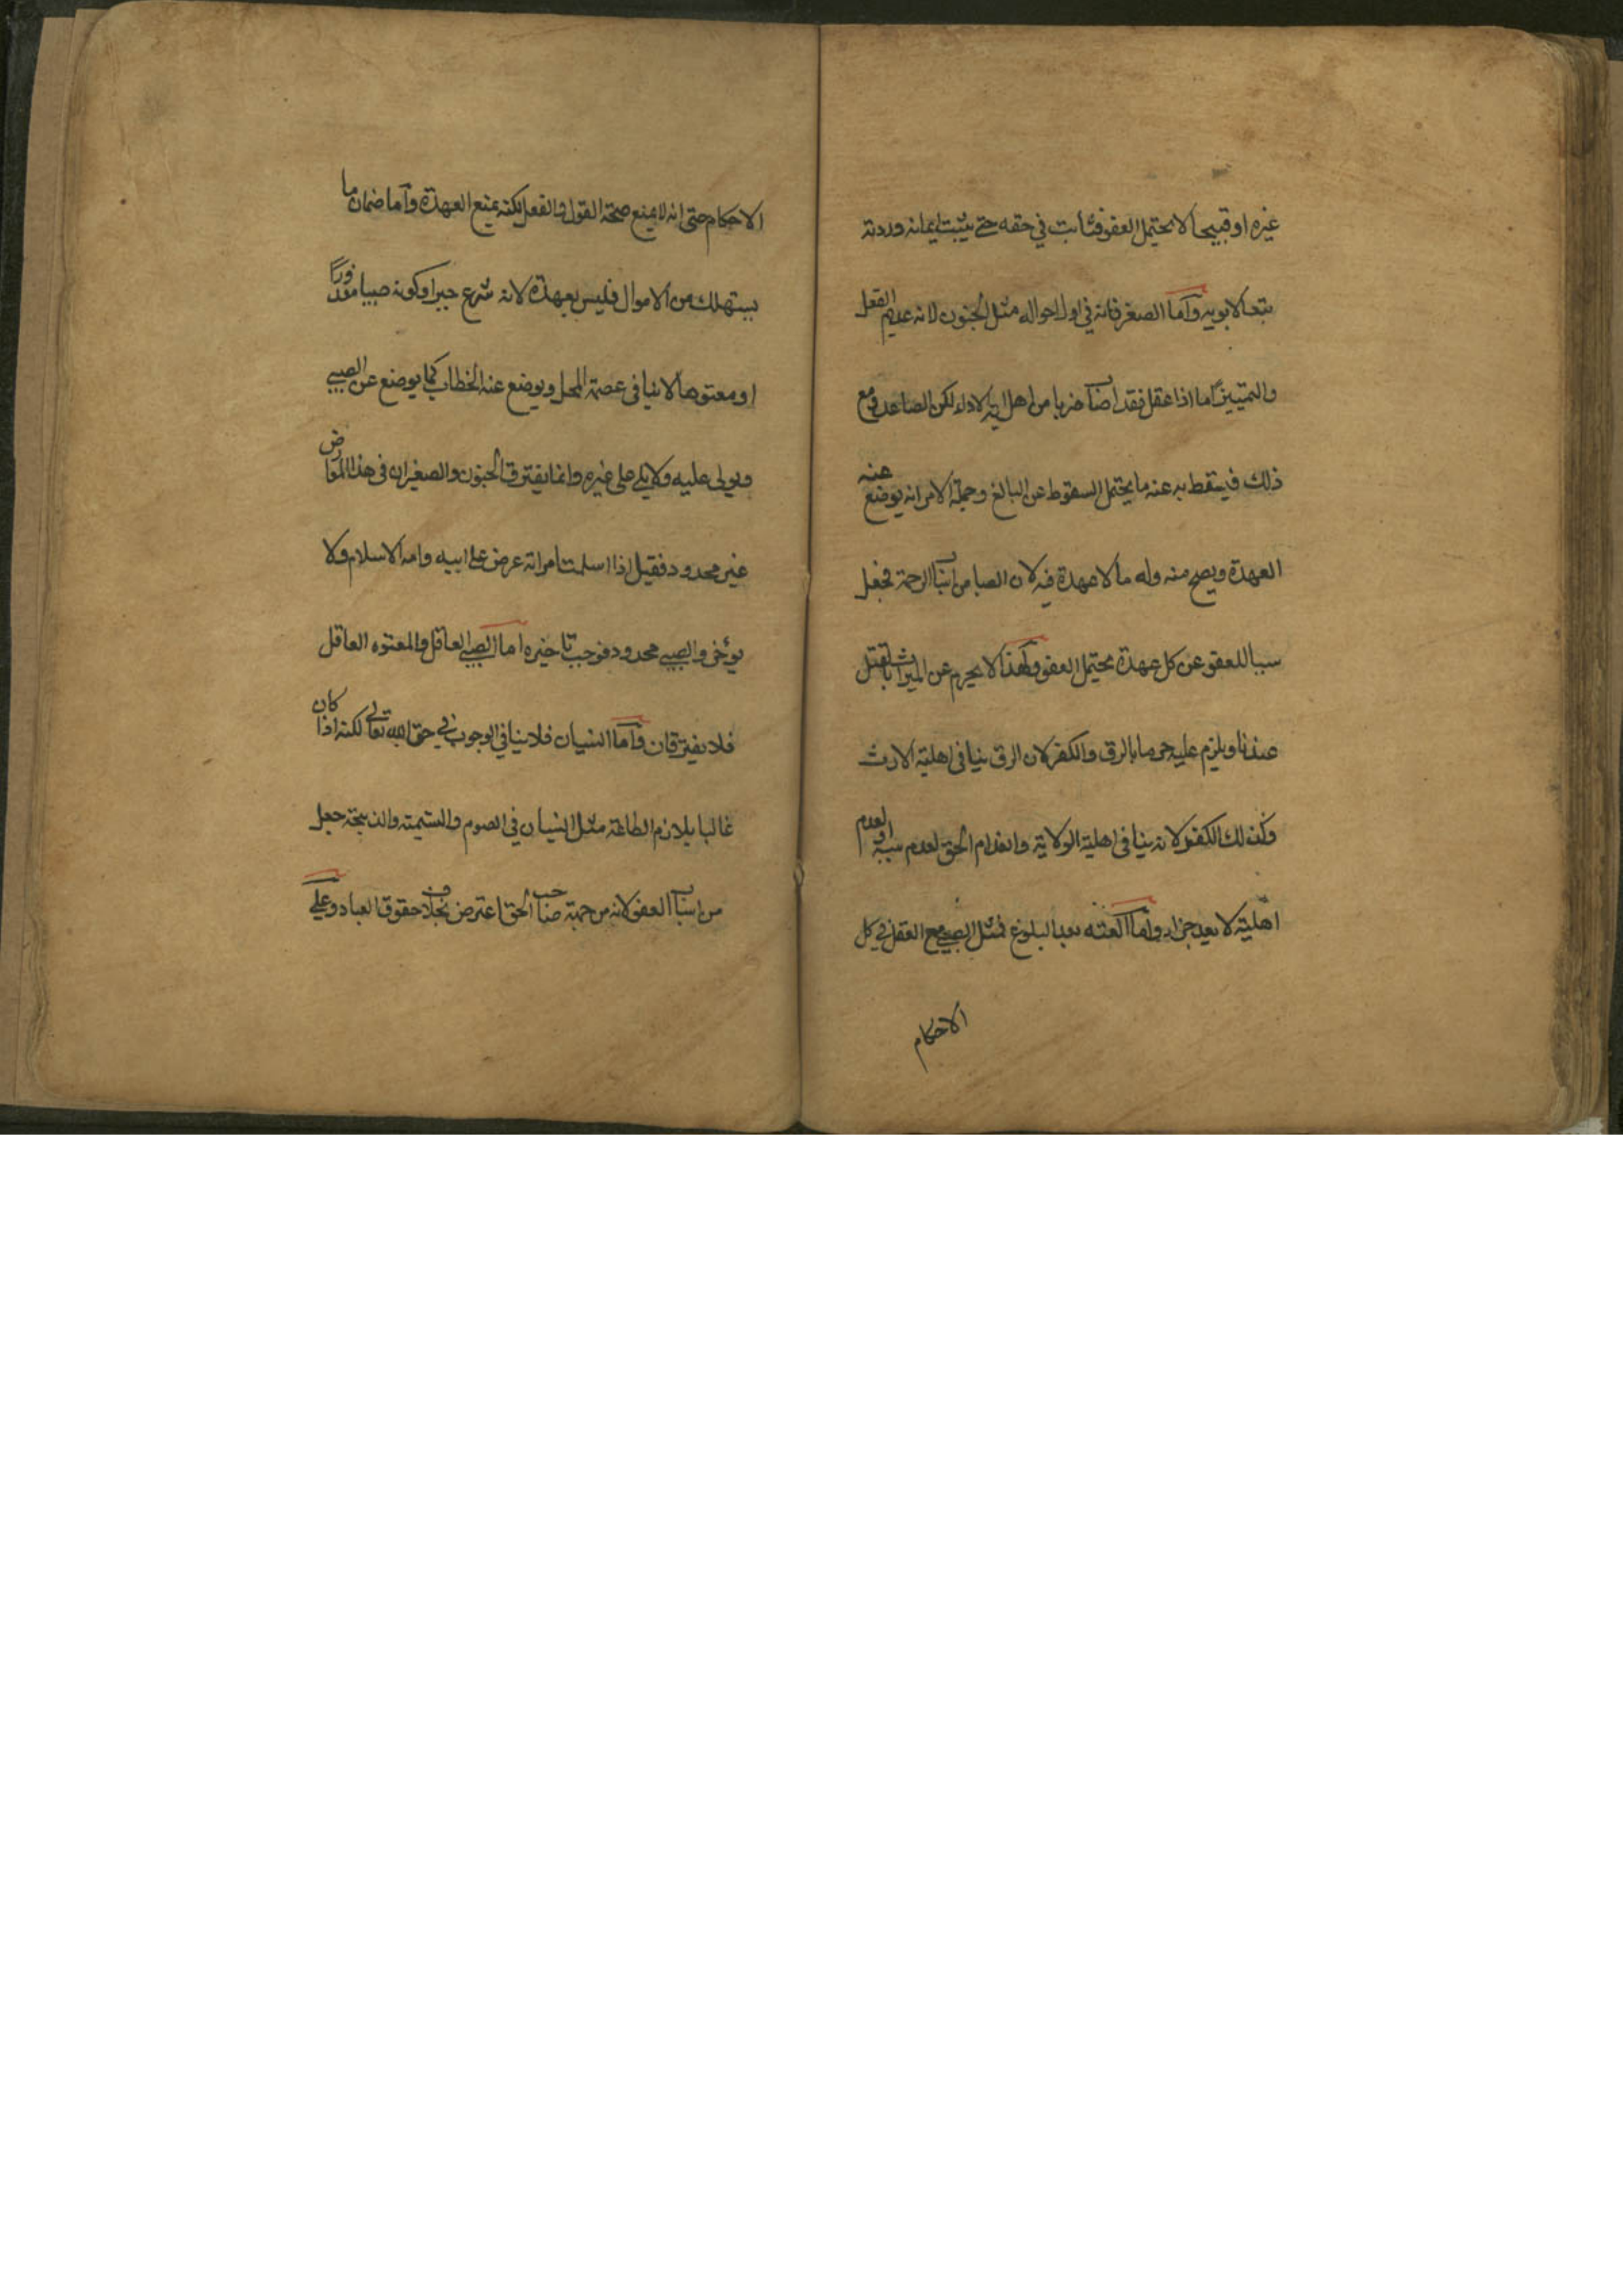 غيره او قبيحا لا يحتمل العفو فثابت في حقه حتى يثبت ايمانه وردته
تبعا لابويه واما الصغر فانه في اول احواله مثل الجنون لانه عديم العقل
والتمييز اما اذا عقل فقد اصاب ضربا من اهلية الاداء لكن الصبا عذر مع
ذلك فيسقط به عنه ما يحتمل السقوط عن البالغ وجملة الامر انه يوضع عنه
العهدة ويصح منه وله ما لا عهدة فيه لان الصبا من اسباب الرحمة فجعل
سببا للعفو عن كل عهدة يحتمل العفو ولهذا لا يحرم عن الميراث بالقتل
عندنا ويلزم عليه حرمانه بالرق والكفر لان الرق ينافى اهلية الارث
وكذلك الكفر لانه ينافى اهلية الولاية وانعدام الحق لعدم سببه او لعدم
اهليته لا يعد جزاء واما العته بعد البلوغ فمثل الصبي مع العقل في كل
الاحكام
الاحكام حتى انه لا يمنع صحة القول والفعل لكنه يمنع العهدة واما ضمان ما
يستهلك من الاموال فليس بعهدة لانه شرع جبرا وكونه صبيا معذورا
او معتوها لا ينافى عصمة المحل ويوضع عنه الخطاب كما يوضع عن الصبي
ويولى عليه ولا يلي على غيره وانما يفترق الجنون والصغر ان فى هذا العوارض
غير محدود فقيل اذا اسلمت امراته عرض على ابيه وامه الاسلام ولا
يوخر والصبي محدود فوجب تاخيره اما الصبي العاقل والمعتوه العاقل
فلا يفترقان واما النسيان فلا ينافي الوجوب في حق الله تعالى لكنه اذا كان
غالبا يلازم الطاعة مثل النسيان في الصوم والتسمية والذبيحة جعل
من اسباب العفو لانه من جهة صاحب الحق اعترض بخلاف حقوق العباد وعلى